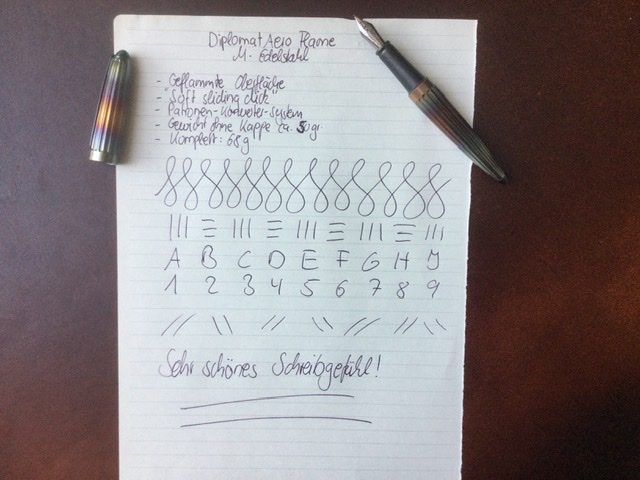 Diplomat Aero Flame
M - Edelstahl
- Geflammte Oberfläche
- Soft sliding click
- Patronen-Konverter-System
- Gewicht ohne Kappe ca. 30gr
- Komplett: 65g
A B C D E F G H
1 2 3 4 5 6 7 8 9
Sehr schönes Schreibgefühl!